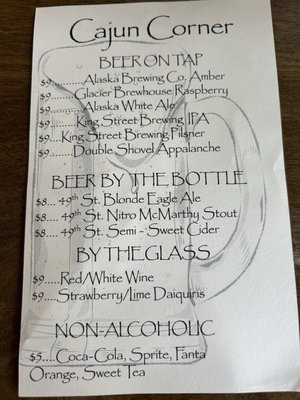 Cajun Corner
BEER ON TAP
$9..........Alaska Brewing Co. Amber
$9.......Glacier Brewhouse Raspberry
$9..........Alaska White Ale
$9.......King Street Brewing IPA
$9....King Street Brewing Pilsner
$9.......Double Shovel Appalanche
BEER BY THE BOTTLE
$8... 49th St. Blonde Eagle Ale
$8.... 49th St. Nitro McMarthy Stout
$8.... 49th St. Semi - Sweet Cider
BY THE GLASS
$9.....Red/White Wine
$9....Strawberry/Lime Daiquiris
NON-ALCOHOLIC
$5....Coca-Cola, Sprite, Fanta
Orange, Sweet Tea